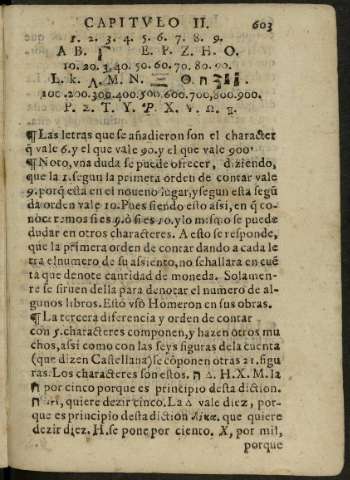 CAPITVLO II. 603
1. 2. 3. 4. 5. 6. 7. 8. 9.
A B. Γ E. P. Z. H. O.
10. 20. 30. 40. 50. 60. 70. 80. 90.
L. k. Λ. M. N. Ξ O.
100.200.300.400.500.600.700.800.900.
P. Σ. T. Y. P. X. V. Ω.
¶Las letras que se añadieron son el character
q̃ vale 6. y el que vale 90. y el que vale 900
¶Noto, vna duda se puede ofrecer, diziendo,
que la I. segun la primera ordẽ de contar vale
9. porq̃ està en el noueno lugar, y segun esta segũ
da orden vale 10. Pues siendo esto assi, en q̃ co-
nocaremos si es 9. ò si es 10. y lo mismo se puede
dudar en otros characteres. A esto se responde,
que la primera orden de contar dando a cada le
tra el numero de su assiento, no se hallara en cuẽ
ta que denote cantidad de moneda. Solamen-
te se siruen della para denotar el numero de al-
gunos libros. Estò vsò Homeron en sus obras.
¶ La tercera diferencia y orden de contar
con 5. characteres componen, y hazen otros mu
chos, assi como con las seys figuras dela cuenta
(que dizen Castellana) se cõponen otras 21. figu
ras. Los characteres son estos. Π Δ. H. X. M. la
Π por cinco porque es principio desta diction.
quiere dezir cinco. La Δ vale diez, por-
que es principio desta diction Δίκα. que quiere
dezir diez. H. se pone por ciento. X, por mil,
porque